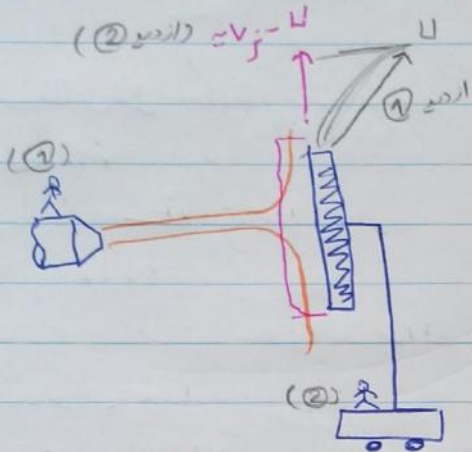 (از دید ②) ≈ V_j - U
U
از دید ①
(①)
(②)